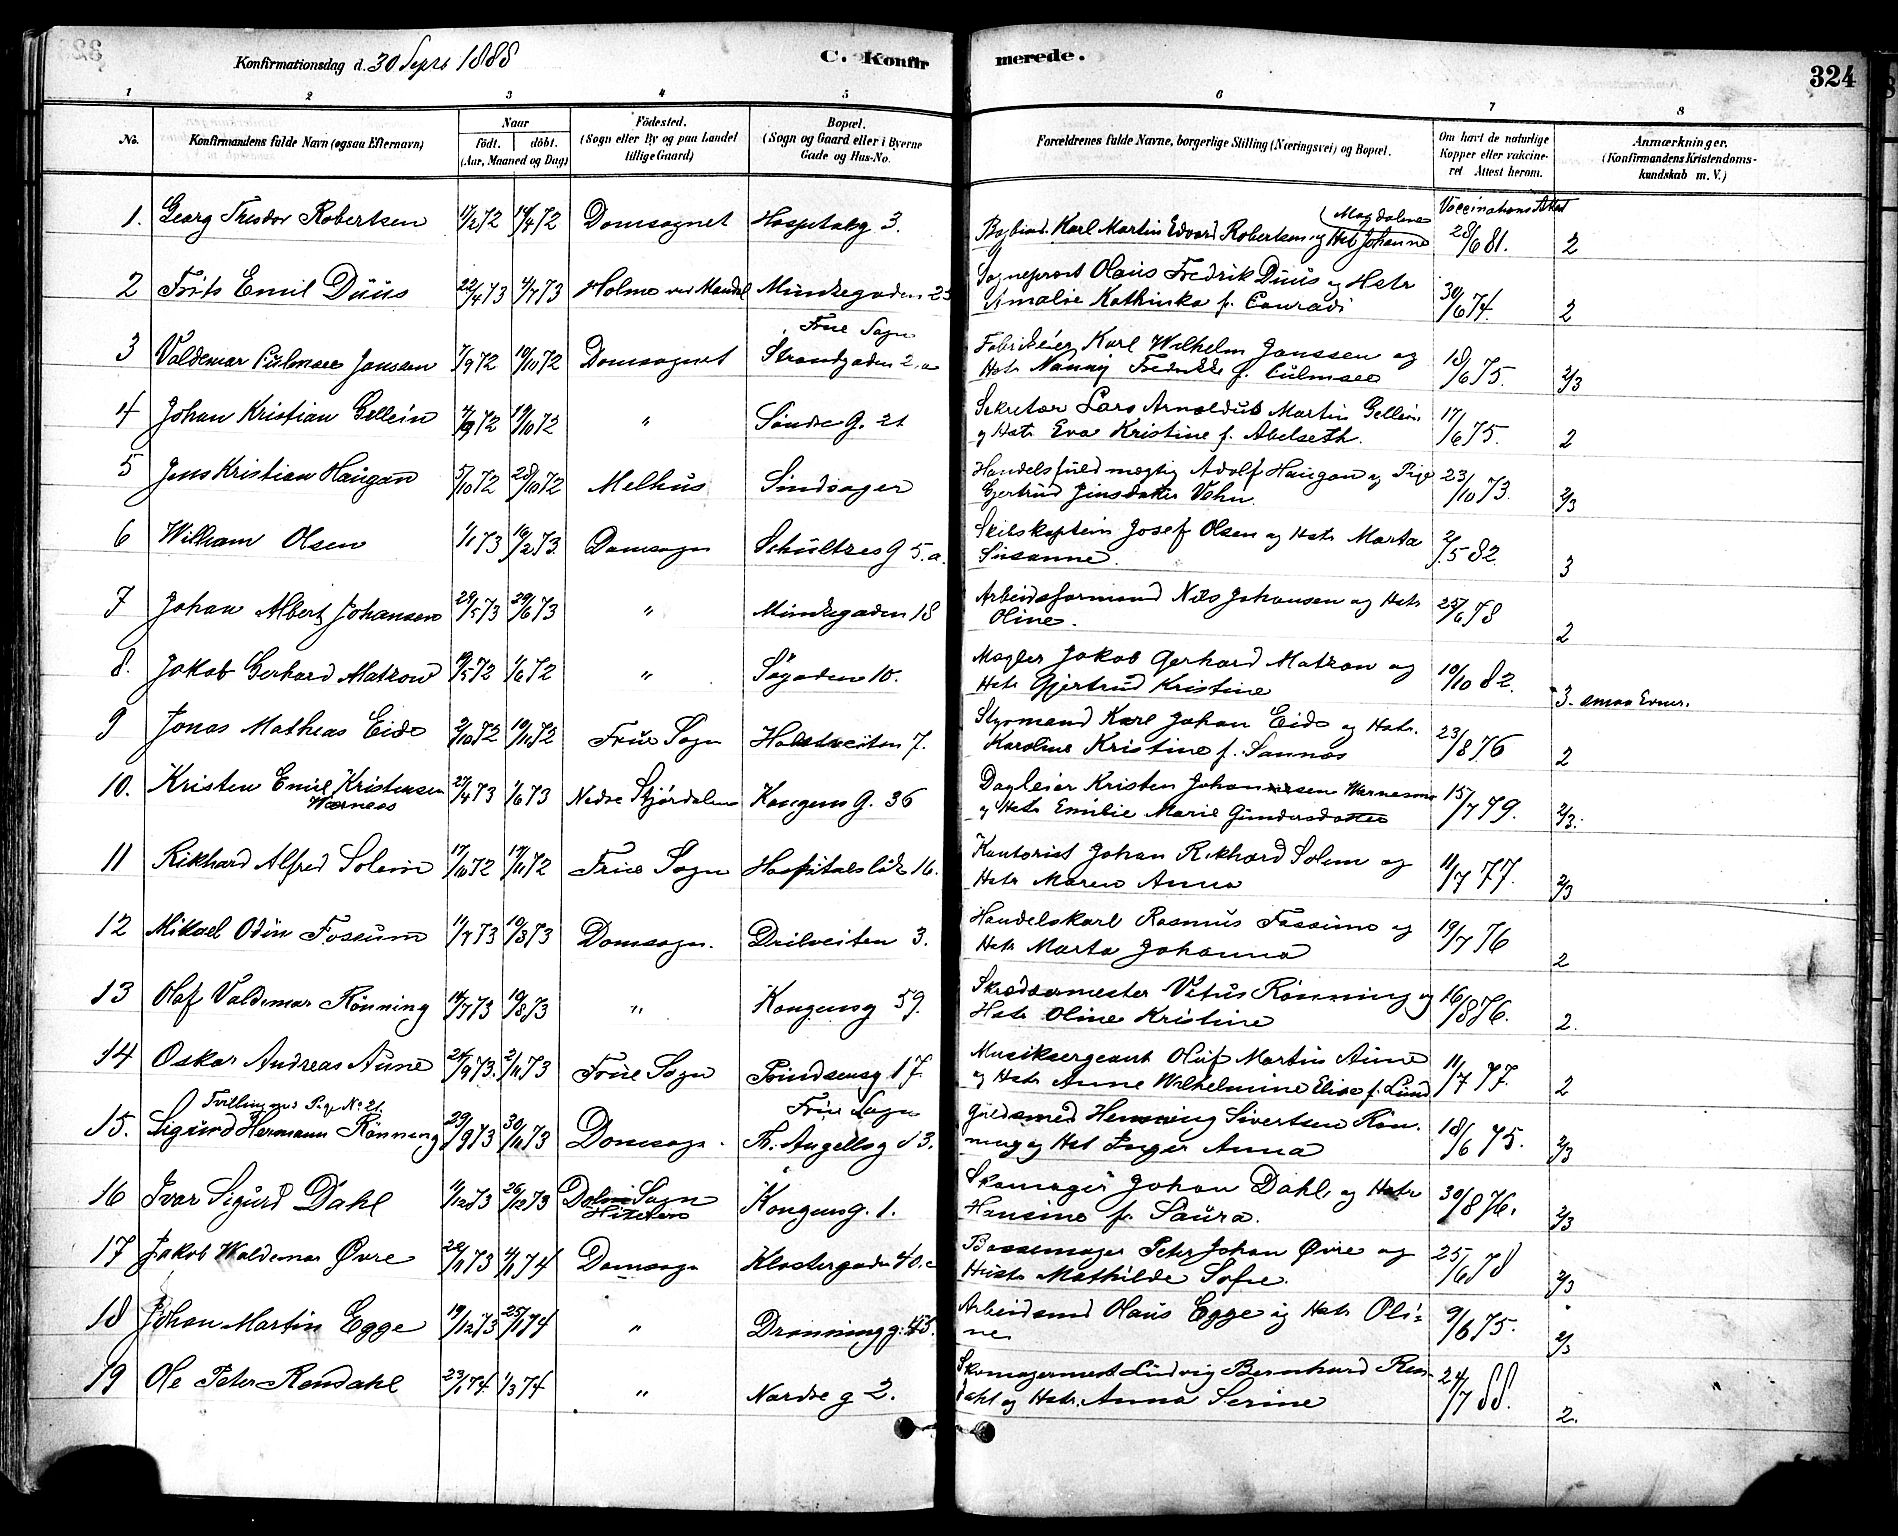 Konfirmationsdag d. 30 Septr 1888 C. Konfirmerede. 324
1 2 3 4 5 6 7 8
No. Konfirmandens fulde Navn (ogsaa Efternavn) Naar födt. döbt. (Aar, Maaned og Dag) Födested. (Sogn eller By og paa Landet tillige Gaard) Bopæl. (Sogn og Gaard eller i Byerne Gade og Hus-No. Forældrenes fulde Navne, borgerlige Stilling (Næringsvei) og Bopæl. Om havt de naturlige Kopper eller vakcineret Attest herom. Anmærkninger. (Konfirmandens Kristendomskundskab m. V.)
Magdalena Vaccinations Attest
1. Georg Theodor Robertsen 72 72 Domsognet 3. Karl Martin Edvard Robertsen og Hstr Johanne 28/6 81. 2
2 Frits Emil Düüs 22/4 73 4/7 73 Holme ved Mandal Munkegaden 23 Sogneprest Olaus Fredrik Düüs og Hstr
Amalie Kathinka f. Conradi 30/6 74. 2
Frue Sogn
3 Valdemar Culmsee Jansen 7/9 72 19/10 72 Domsognet Strandgaden 2.a Fabrikeier Karl Wilhelm Janssen og
Hstr Nanny Fredrikke f. Culmsee 18/6 75. 2/3
4 Johan Kristian Gellein 7/9 72 19/10 72 " Søndre G. 21 Sekretær Lars Arnoldus Martin Gellein
og Hstr Eva Kristine f. Abelseth. 17/6 75. 2
5 Jens Kristian Haugan 5/10 72 28/10 72 Melhus Sindsager Handelsfuldmægtig Adolf Haugan og Pige
Gjertrud Jensdatter Vohn. 23/10 73. 2/3
6 William Olsen 1/1 73 19/2 73. Domsogn Schultzes G 5.a. Skibskaptein Josef Olsen og Hstr Marta
Susanne. 2/5 82 3
7 Johan Albert Johansen 29/5 73 29/6 73 " Munkegaden 18 Arbeidsformand Nils Johansen og Hstr
Oline. 25/6 78 2
8. Jakob Gerhard Matzow 72 1/6 72 " Søgaden 10. Mægler Jakob Gerhard Matzow og
Hstr Gjertrud Kristine 10/10 82. 3. smaa Evner.
9 Jonas Mathias Eide 2/10 72 19/11 72 Frue Sogn 7. Styrmand Karl Johan Eide og Hstr.
Karoline Kristine f. Sannæs 23/8 76 2
10. Kristen Emil Kristensen
Wærnæs 27/4 73 1/6 73 Nedre Stjørdalen Kongens G. 36 Dagleier Kristen Johansen
og Hstr Emilie Marie Gundersdatter 15/7 79. 2/3.
11 Rikhard Alfred Solem 17/10 72 17/11 72 Frue Sogn 16. Kontorist Johan Rikhard Solem og
Hstr Maren Anna 11/7 77. 2/3
12 Mikael Odin Fossum 73 19/3 73 Domsogn. 3. Handelskarl Rasmus Fossum og
Hstr Marta Johanna 19/7 76 2
13 Olaf Valdemar Rønning 14/7 73 19/8 73 " Kongensg 59. Skræddermester Vitus Rønning og
Hstr Oline Kristine 16/8 76. 2.
14 Oskar Andreas Aune 24/9 73. 2/11 73 Frue Sogn Prindsensg 17. Musiksergeant Oluf Martin Aune
og Hstr Anne Wilhelmine Elise f. Lund 11/7 77. 2
Tvilling med Pige No 21. Frue Sogn
15. Sigurd Hermann Rønning 29/9 73 30/11 73 Domsogn. Th. Angellsg 13. Guldsmed Henning Sivertsen Røn-
ning og Hst Inger Anna 18/6 75. 2/3
16 Ivar Sigurd Dahl 11/12 73 26/12 73 Dolm Sogn
Hitteren Kongensg. 1. Skomager Johan Dahl, og Hstr
Hansine f. Saura. 30/8 76. 2/3
17 Jakob Waldemar Øvre 22/11 73 4/1 74 Domsogn Klostergaden 40.c Bøssemager Peter Johan Øvre og
Hustr Mathilde Sofie. 25/6 78 2/3
18 Johan Martin Egge 19/12 73 25/1 74 " Dronningg. 45. Arbeidsmd Olaus Egge og Hstr Oli-
ne 9/6 75. 2/3
19 Ole Peter Rendahl 23/1 74 1/3 74 " Nordre g 2. Skomagermest Ludvig Bernhard Ren-
dahl og Hstr. Anna Serine 24/7 88. 2.